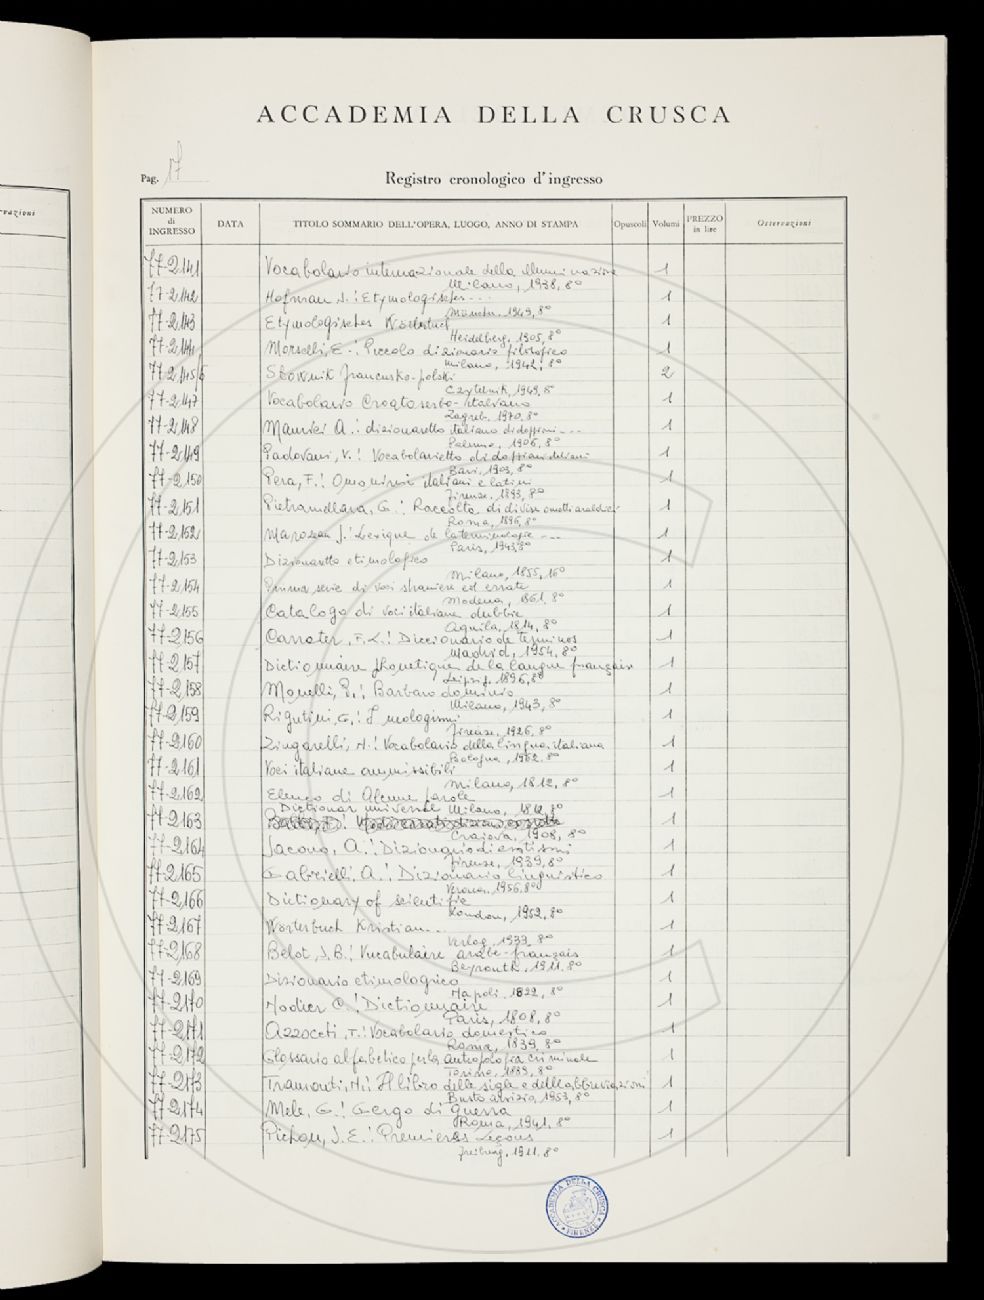 rvazioni
ACCADEMIA DELLA CRUSCA
Pag. 17
Registro cronologico d'ingresso
NUMERO di INGRESSO DATA TITOLO SOMMARIO DELL'OPERA, LUOGO, ANNO DI STAMPA Opuscoli Volumi PREZZO in lire Osservazioni
77-2141 Vocabolario internazionale della illuminazione 1
Milano, 1938, 8°
77-2142 Hofman J.: Etymologisches... 1
München, 1949, 8°
77-2143 Etymologisches Wörterbuch 1
Heidelberg, 1905, 8°
77-2144 Morselli, E.: Piccolo dizionario filosofico 1
Milano, 1942, 8°
77-2145/6 Słownik francusko-polski 2
Czytelnik, 1949, 8°
77-2147 Vocabolario Croatoserbo-italiano 1
Zagreb, 1970, 8°
77-2148 A.: dizionaretto italiano di doppioni... 1
Palermo, 1906, 8°
77-2149 Padovani, V.: Vocabolarietto di doppioni italiani 1
Bari, 1903, 8°
77-2150 Pera, F.: Omonimi italiani e latini 1
Firenze, 1893, 8°
77-2151 Pietramellara, G.: Raccolta di divise motti araldici 1
Roma, 1896, 8°
77-2152 Marozeau J.: Lexique de la terminologie --- 1
Paris, 1943, 8°
77-2153 Dizionaretto etimologico 1
Milano, 1855, 16°
77-2154 Prima serie di voci straniere ed errate 1
Modena, 1861, 8°
77-2155 Catalogo di voci italiane dubbie 1
Aquila, 1814, 8°
77-2156 Carreter, F.L.: Diccionario de terminos 1
Madrid, 1954, 8°
77-2157 Dictionnaire phonetique de la langue française 1
Leipzig, 1896, 8°
77-2158 Monelli, P.: Barbaro dominio 1
Milano, 1943, 8°
77-2159 Rigutini, G.: I neologismi 1
Firenze, 1926, 8°
77-2160 Zingarelli, N.: Vocabolario della lingua italiana 1
Bologna, 1962, 8°
77-2161 Voci italiane ammissibili 1
Milano, 1812, 8°
77-2162 Elenco di Alcune parole 1
Milano, 1812, 8°
77-2163 Dictionar universal 1
Craiova, 1908, 8°
77-2164 Jacono, A.: Dizionario di esotismi 1
Firenze, 1939, 8°
77-2165 Gabrielli, A.: Dizionario linguistico 1
Verona, 1956, 8°
77-2166 Dictionary of scientific 1
London, 1952, 8°
77-2167 Wörterbuch Kristian... 1
Verlag, 1933, 8°
77-2168 Belot, J.B.: Vocabulaire arabe-français 1
Beyrouth, 1911, 8°
77-2169 Dizionario etimologico 1
Napoli, 1822, 8°
77-2170 Nodier C.: Dictionnaire 1
Paris, 1808, 8°
77-2171 Azzocchi, T.: Vocabolario domestico 1
Roma, 1839, 8°
77-2172 Glossario alfabetico per la antropologia criminale 1
Torino, 1889, 8°
77-2173 Tramonti, N.: Il libro delle sigle e delle abbreviazioni 1
Busto Arsizio, 1953, 8°
77-2174 Mele, G.: Gergo di guerra 1
Roma, 1941, 8°
77-2175 Pichon, J.E.: Premières Leçons 1
Freiburg, 1911, 8°
ACCADEMIA DELLA CRUSCA
FIRENZE